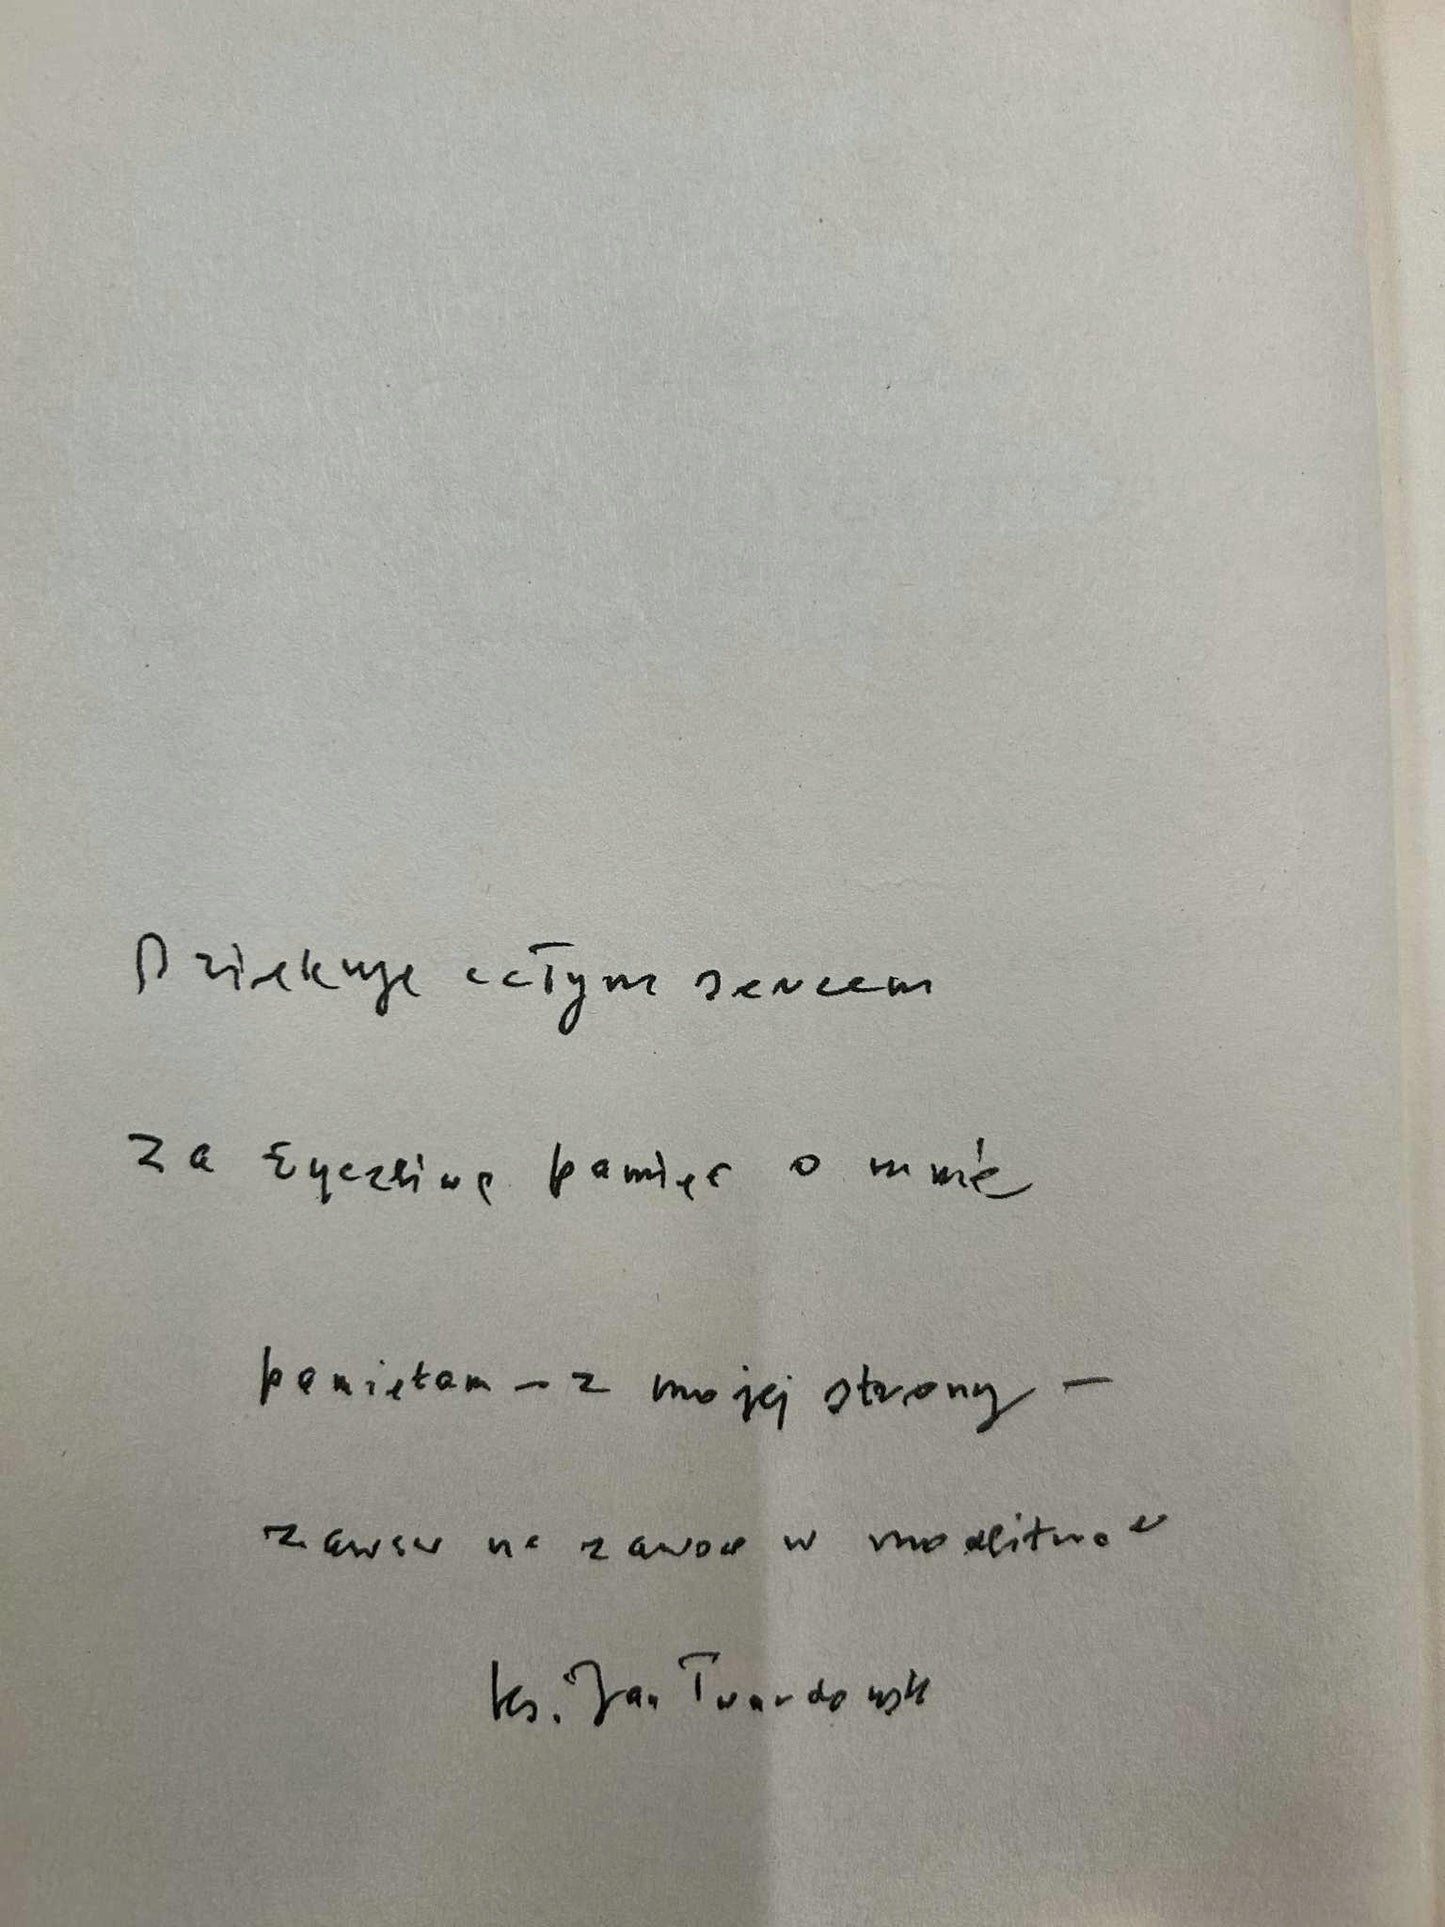 Dziękuję całym sercem
za życzliwą pamięć o mnie
pamiętam – z mojej strony –
zawsze na zawsze w modlitwie
ks. Jan Twardowski